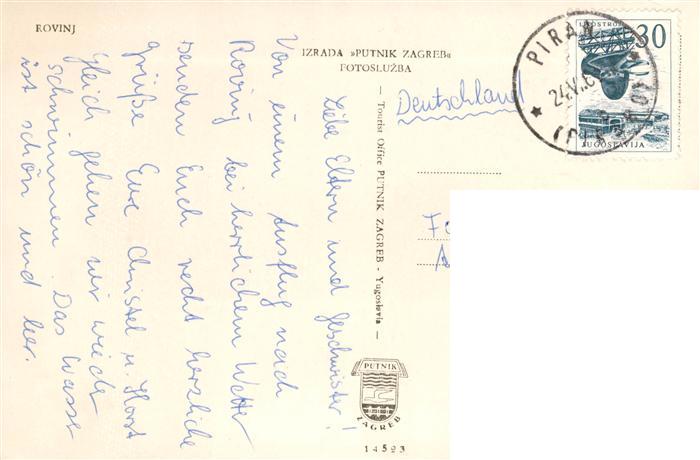 ROVINJ
IZRADA »PUTNIK ZAGREB«
FOTOSLUŽBA
— Tourist Office PUTNIK ZAGREB - Yugoslavia —
PUTNIK
ZAGREB
14593
Deutschland
PIRAN
24.V.6
30
JUGOSLAVIJA
Liebe Eltern und Geschwister!
Von einem Ausflug nach
Rovinj bei herrlichem Wetter
senden Euch recht herzliche
Grüße Eure Christel u. Horst
Gleich gehen wir wieder
schwimmen. Das Wasser
ist schön und leer.